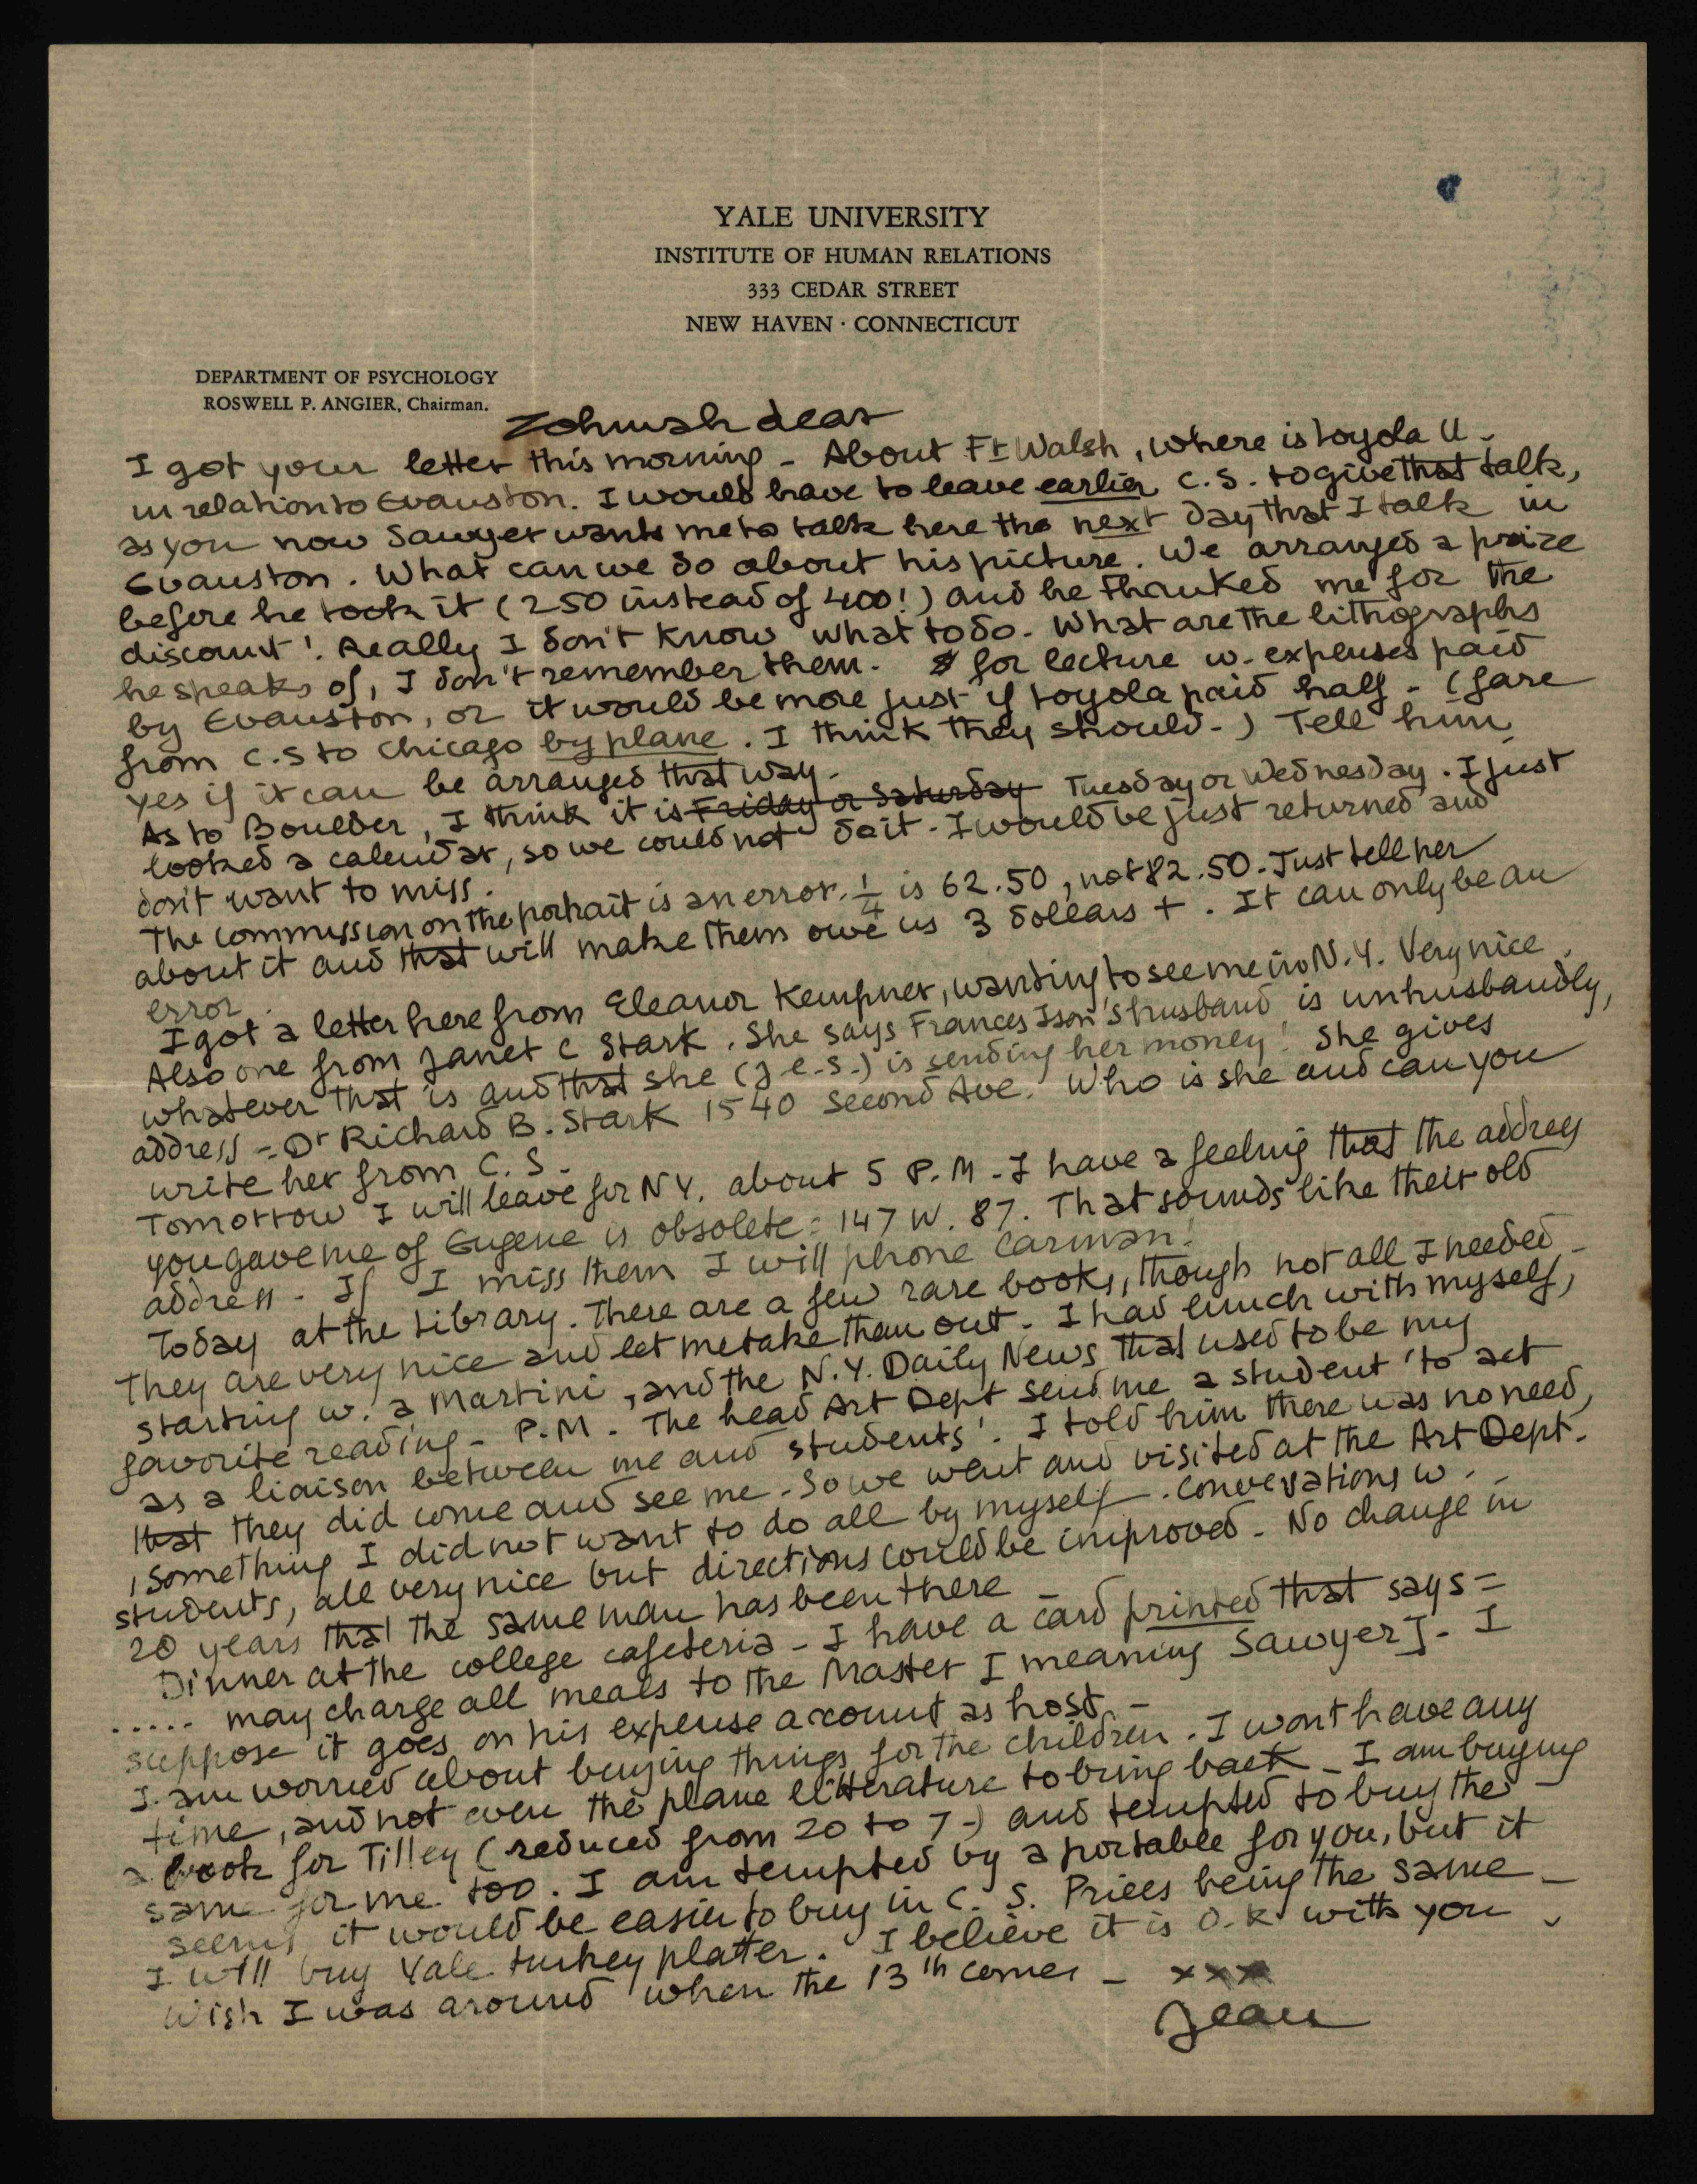 YALE UNIVERSITY
INSTITUTE OF HUMAN RELATIONS
333 CEDAR STREET
NEW HAVEN · CONNECTICUT
DEPARTMENT OF PSYCHOLOGY
ROSWELL P. ANGIER, Chairman.
Zohmah dear
I got your letter this morning - About Ft Walsh, where is Loyola U.
in relation to Evanston. I would have to leave earlier C.S. to give that talk,
as you now Sawyer wants me to talk here the next day that I talk in
Evanston. What can we do about his picture. We arranged a praice
before he took it (250 instead of 400!) and he thanked me for the
discount! Really I don't know what to do. What are the lithographs
he speaks of, I don't remember them. $ for lecture w. expenses paid
by Evanston, or it would be more just if Loyola paid half - (fare
from C.S to Chicago by plane. I think they should-) Tell him
yes if it can be arranged that way.
As to Boulder, I think it is Friday or Saturday Tuesday or Wednesday. I just
looked a calendar, so we could not do it - I would be just returned and
don't want to miss.
The commission on the portrait is an error. 1/4 is 62.50, not 82.50. Just tell her
about it and that will make them owe us 3 dollars +. It can only be an
error.
I got a letter here from Eleanor Kempner, wanting to see me in N.Y. Very nice.
Also one from Janet C Stark. She says Frances Ison's husband is unhusbandly,
whatever that is and that she (J-C.S.) is sending her money! She gives
address - Dr Richard B. Stark 1540 Second Ave. Who is she and can you
write her from C.S.
Tomorrow I will leave for NY. about 5 P.M. - I have a feeling that the address
you gave me of Eugene is obsolete = 147 W. 87. That sounds like their old
address - If I miss them I will phone Carman!
Today at the Library. There are a few rare books, though not all I needed -
They are very nice and let me take them out. I had lunch with myself,
starting w. a Martini, and the N.Y. Daily News that used to be my
favorite reading - P.M. The head Art Dept send me a student 'to act
as a liaison between me and students'. I told him there was no need,
that they did come and see me. So we went and visited at the Art Dept.
, something I did not want to do all by myself. Convesations w.
students, all very nice but directions could be improved - No change in
20 years that the same man has been there -
Dinner at the college cafeteria - I have a card printed that says =
..... may charge all meals to the Master [meaning Sawyer] - I
suppose it goes on his expense account as host -
I am worried about buying things for the children. I wont have any
time, and not even the plane litterature to bring back - I am buying
a book for Tilley (reduced from 20 to 7-) and tempted to buy the
same for me too. I am tempted by a portable for you, but it
seems it would be easier to buy in C.S. Prices being the same -
I will buy Yale turkey platter. I believe it is O.K with you
Wish I was around when the 13th comes - xxx
Jean